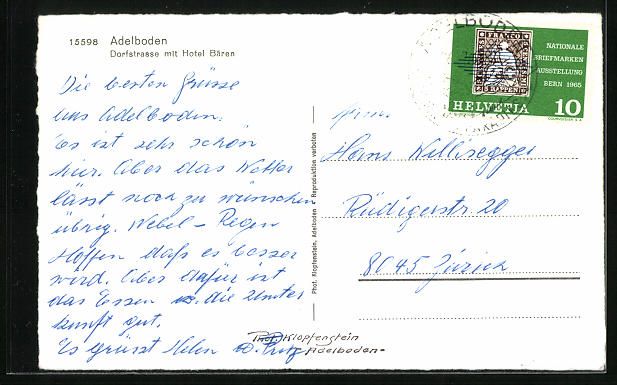 15598 Adelboden
Dorfstrasse mit Hotel Bären
Die besten Grüsse
aus Adelboden.
Es ist sehr schön
hier. Aber das Wetter
lässt noch zu wünschen
übrig. Nebel - Regen
Hoffen daß es besser
wird. Aber dafür ist
das Essen u. die Unter
kunft gut.
Es grüsst Helen u. Fritz
Phot. Klopfenstein, Adelboden Reproduktion verboten
Phot. Klopfenstein
Adelboden-
NATIONALE
BRIEFMARKEN
AUSSTELLUNG
BERN 1965
FRANCO
5 RAPPEN
HELVETIA 10
COURVOISIER S.A.
ADELBODEN
Hans Willisegger
Rüdigerstr 20
8045 Zürich